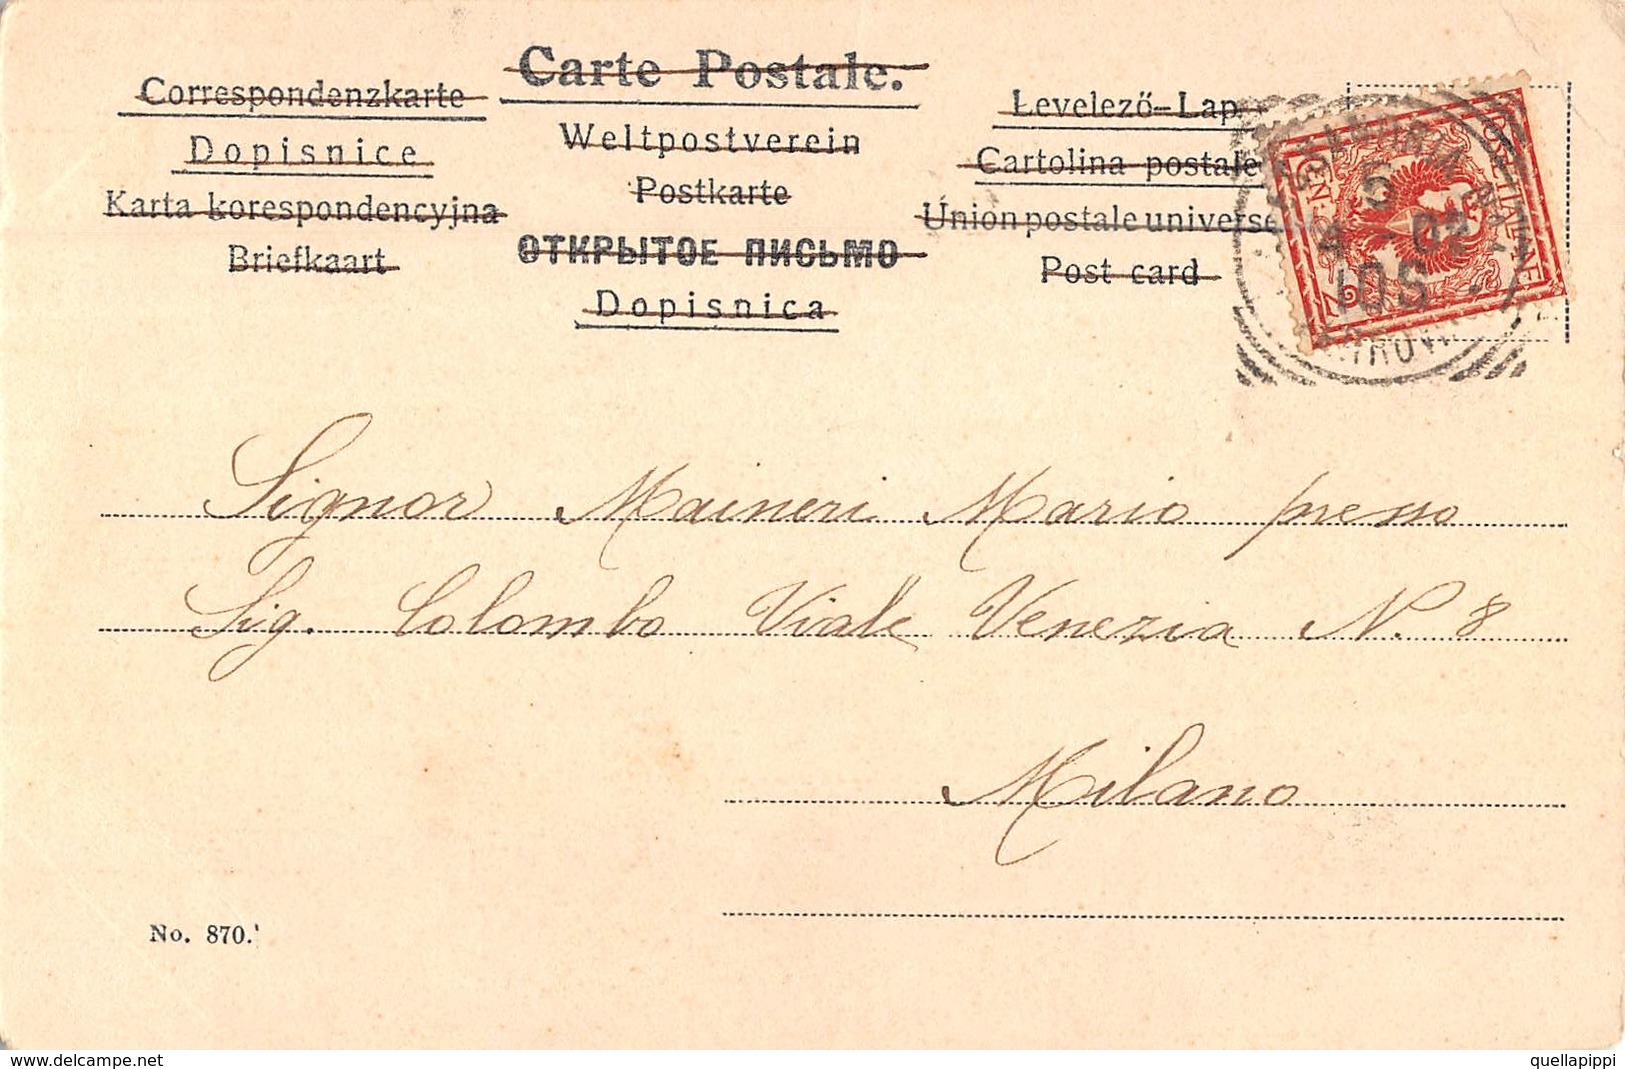 Carte Postale.
Correspondenzkarte
Dopisnice
Karta korespondencyjna
Briefkaart
Weltpostverein
Postkarte
ОТКРЫТОЕ ПИСЬМО
Dopisnica
Levelező-Lap
Cartolina postale
Union postale universe
Post card
POSTE ITALIANE
5
4 02
10S
Signor Maineri Mario presso
Sig. Colombo Viale Venezia N. 8
Milano
No. 870.
www.delcampe.net
quellapippi